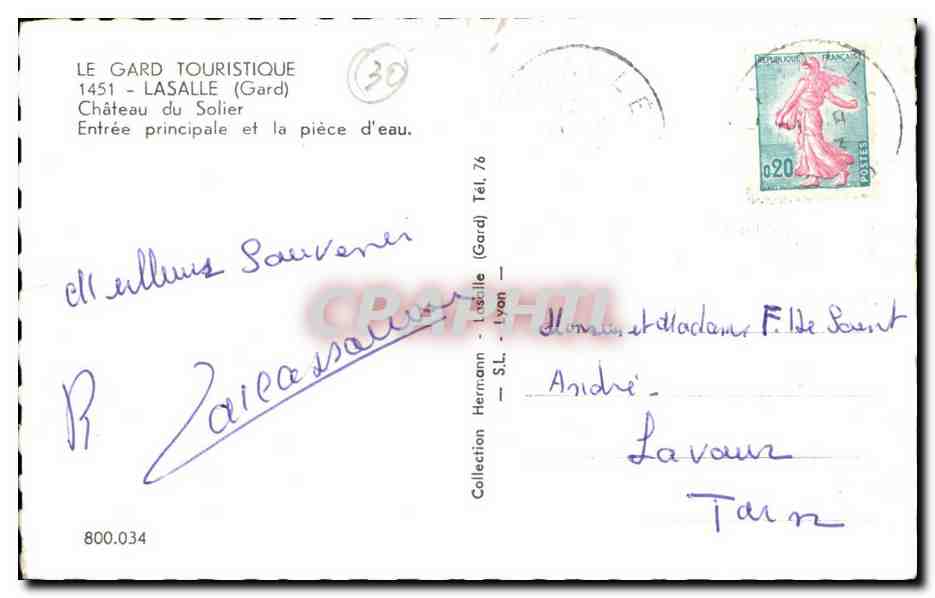 LE GARD TOURISTIQUE
1451 - LASALLE (Gard)
Château du Solier
Entrée principale et la pièce d'eau.
30
Meilleurs Souvenirs
R
800.034
Collection Hermann - Lasalle (Gard) Tél. 76
— S.L. - Lyon —
CPAPHIL
REPUBLIQUE FRANÇAISE
0,20
POSTES
Monsieur et Madame F. De Saint
André.
Lavaur
Tarn